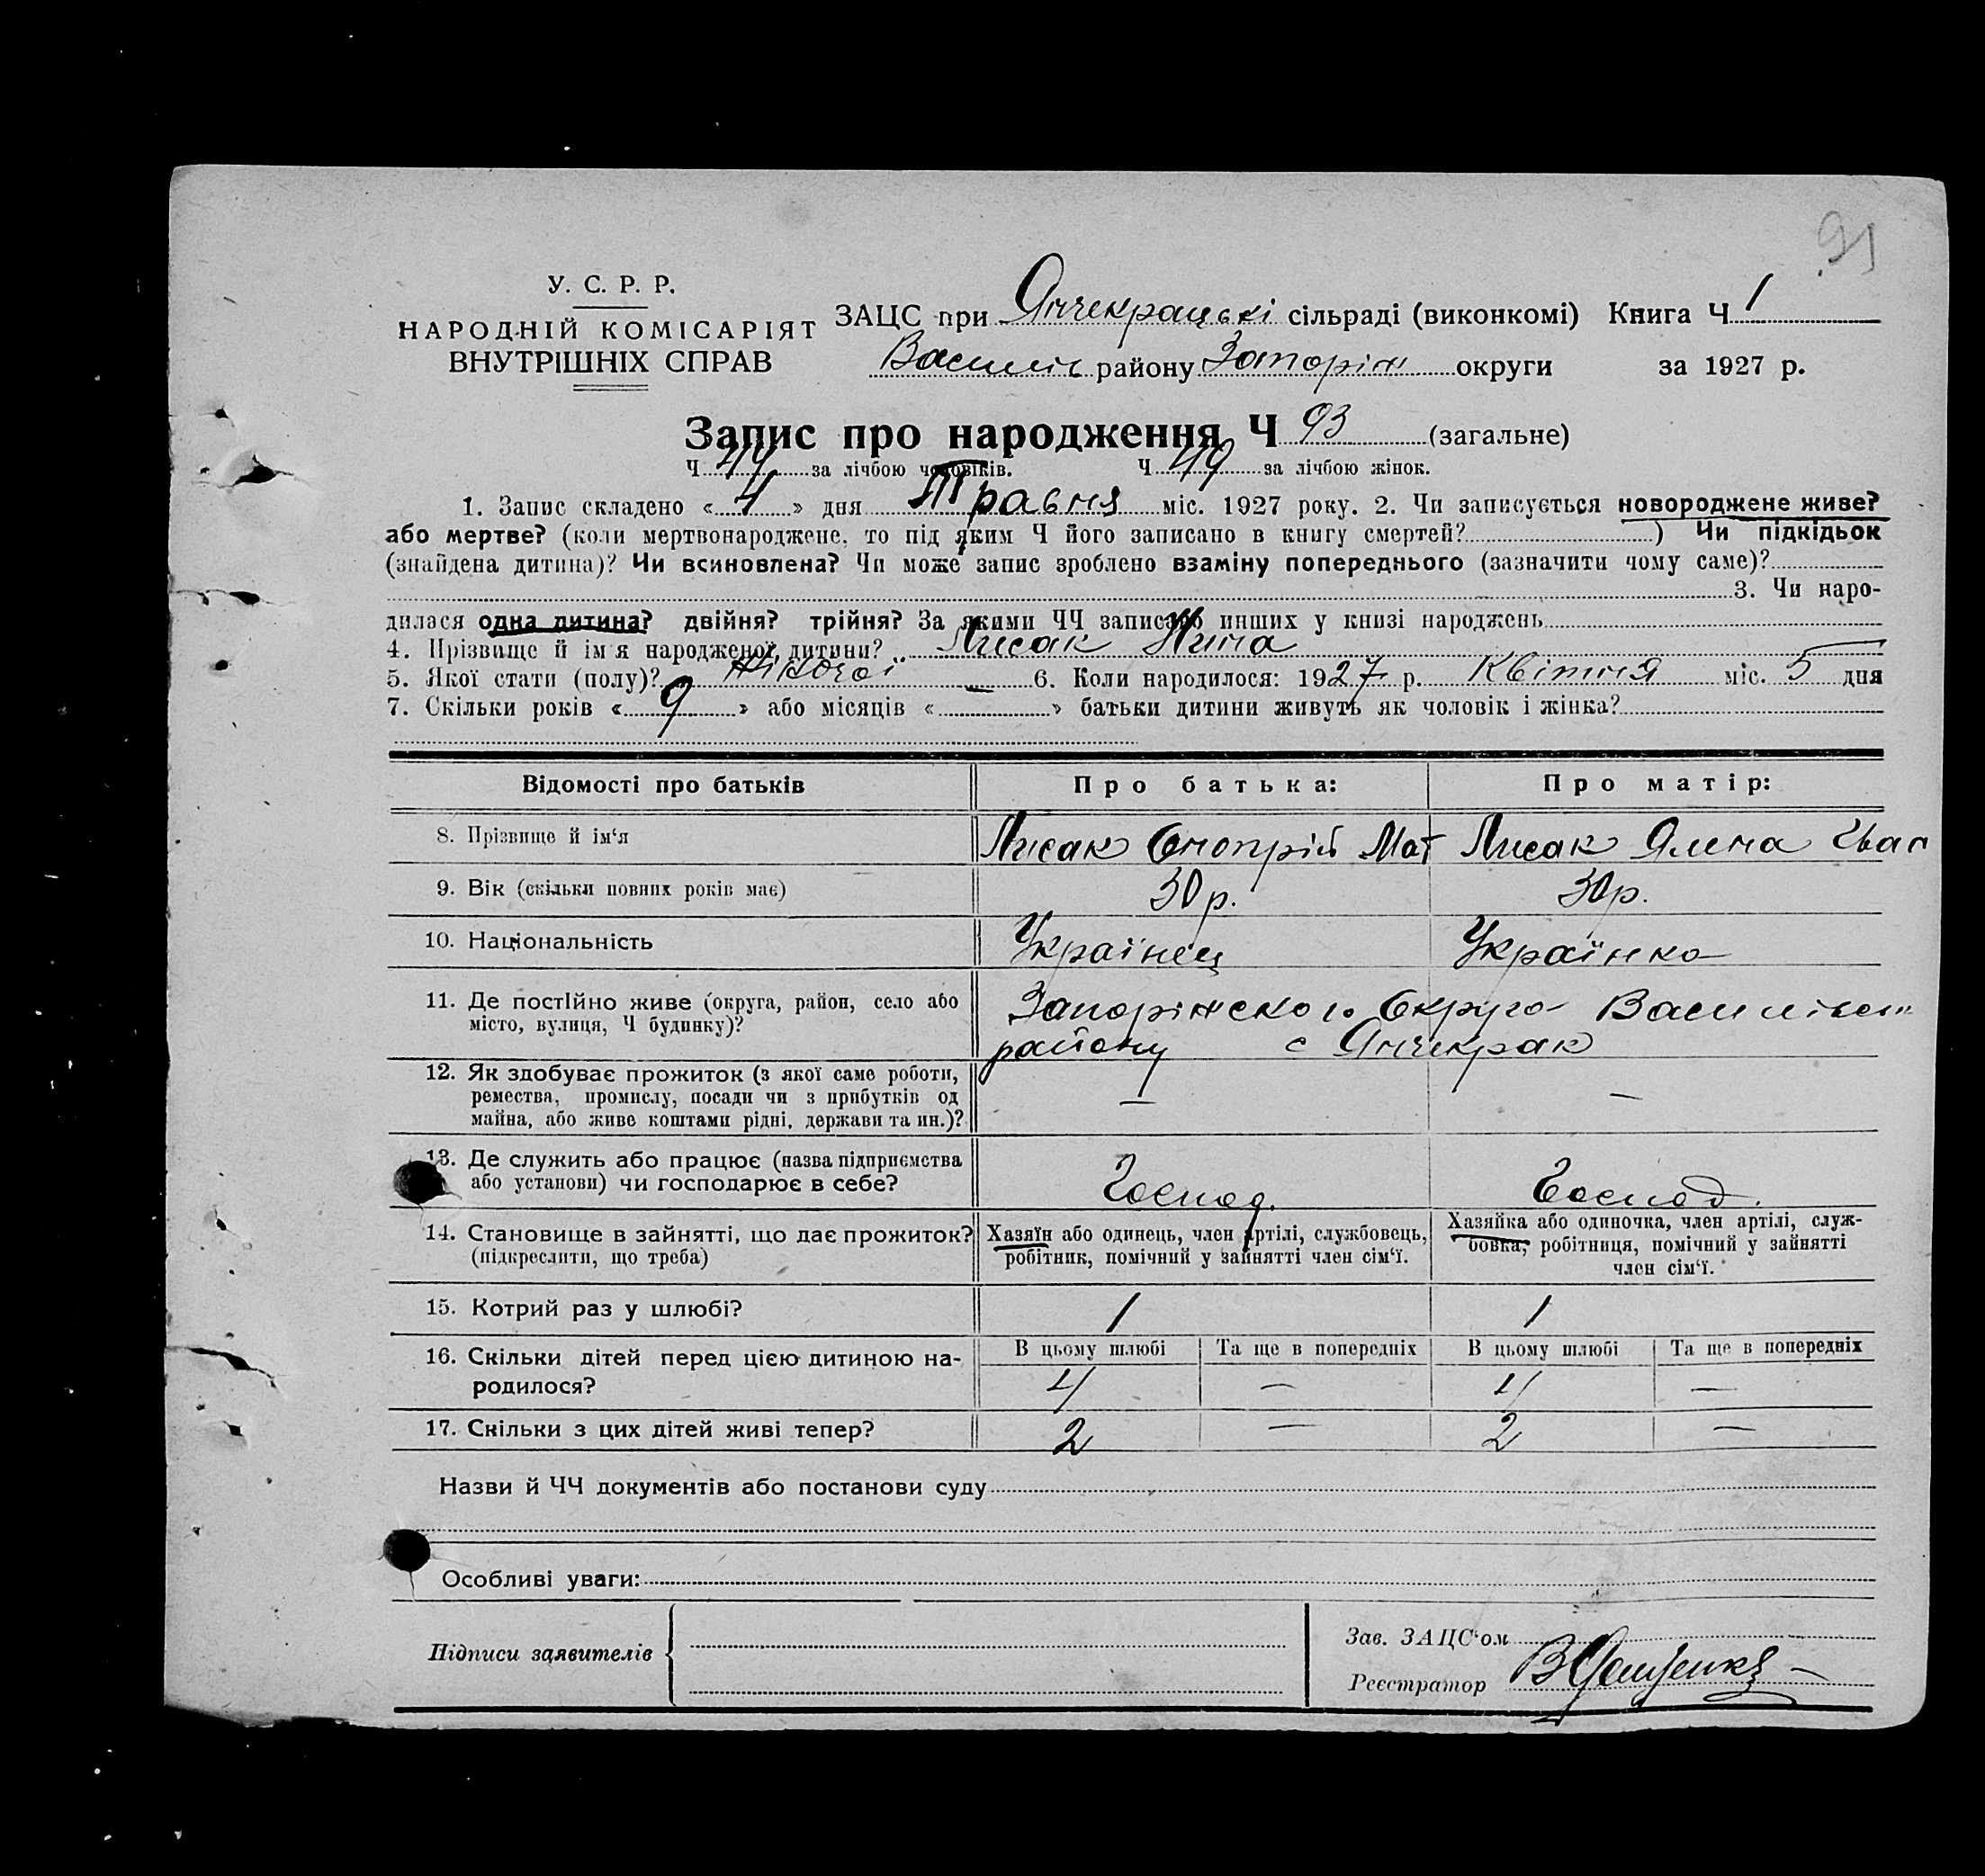 91
У. С. Р. Р.
НАРОДНІЙ КОМІСАРІЯТ
ВНУТРІШНІХ СПРАВ
ЗАЦС при Янчекрацькі сільраді (виконкомі) Книга Ч 1
Василів району Запоріж округи за 1927 р.
Запис про народження Ч 93 (загальне)
Ч 44 за лічбою чоловіків. Ч 49 за лічбою жінок.
1. Запис складено « 4 » дня Травня міс. 1927 року. 2. Чи записується новороджене живе?
або мертве? (коли мертвонароджене, то під яким Ч його записано в книгу смертей? ) Чи підкідьок
(знайдена дитина)? Чи всиновлена? Чи може запис зроблено взаміну попереднього (зазначити чому саме)?
3. Чи наро-
дилася одна дитина? двійня? трійня? За якими ЧЧ записано инших у книзі народжень
4. Прізвище й ім'я народженої дитини? Лисак Нина
5. Якої стати (полу)? Жіночої 6. Коли народилося: 1927 р. Квітня міс. 5 дня
7. Скільки років « 9 » або місяців « — » батьки дитини живуть як чоловік і жінка?
Відомості про батьків Про батька: Про матір:
8. Прізвище й ім'я Лисак Онопрій Мат Лисак Ялена Іван
9. Вік (скільки повних років має) 30 р. 30 р.
10. Національність Українец Українка
11. Де постійно живе (округа, район, село або
місто, вулиця, Ч будинку)?
Запоріжского Округа Василівск
району с Янчекрак
12. Як здобуває прожиток (з якої саме роботи,
ремества, промислу, посади чи з прибутків од
майна, або живе коштами рідні, держави та ин.)?
— —
13. Де служить або працює (назва підприємства
або установи) чи господарює в себе?
Господ. Господ.
14. Становище в зайнятті, що дає прожиток?
(підкреслити, що треба)
Хазяїн або одинець, член артілі, службовець,
робітник, помічний у зайнятті член сім'ї.
Хазяйка або одиночка, член артілі, служ-
бовка, робітниця, помічний у зайнятті
член сім'ї.
15. Котрий раз у шлюбі? 1 1
16. Скільки дітей перед цією дитиною на-
родилося?
В цьому шлюбі Та ще в попередніх В цьому шлюбі Та ще в попередніх
4 — 4 —
17. Скільки з цих дітей живі тепер? 2 — 2 —
Назви й ЧЧ документів або постанови суду
Особливі уваги:
Підписи заявителів
Зав. ЗАЦС'ом
Реєстратор